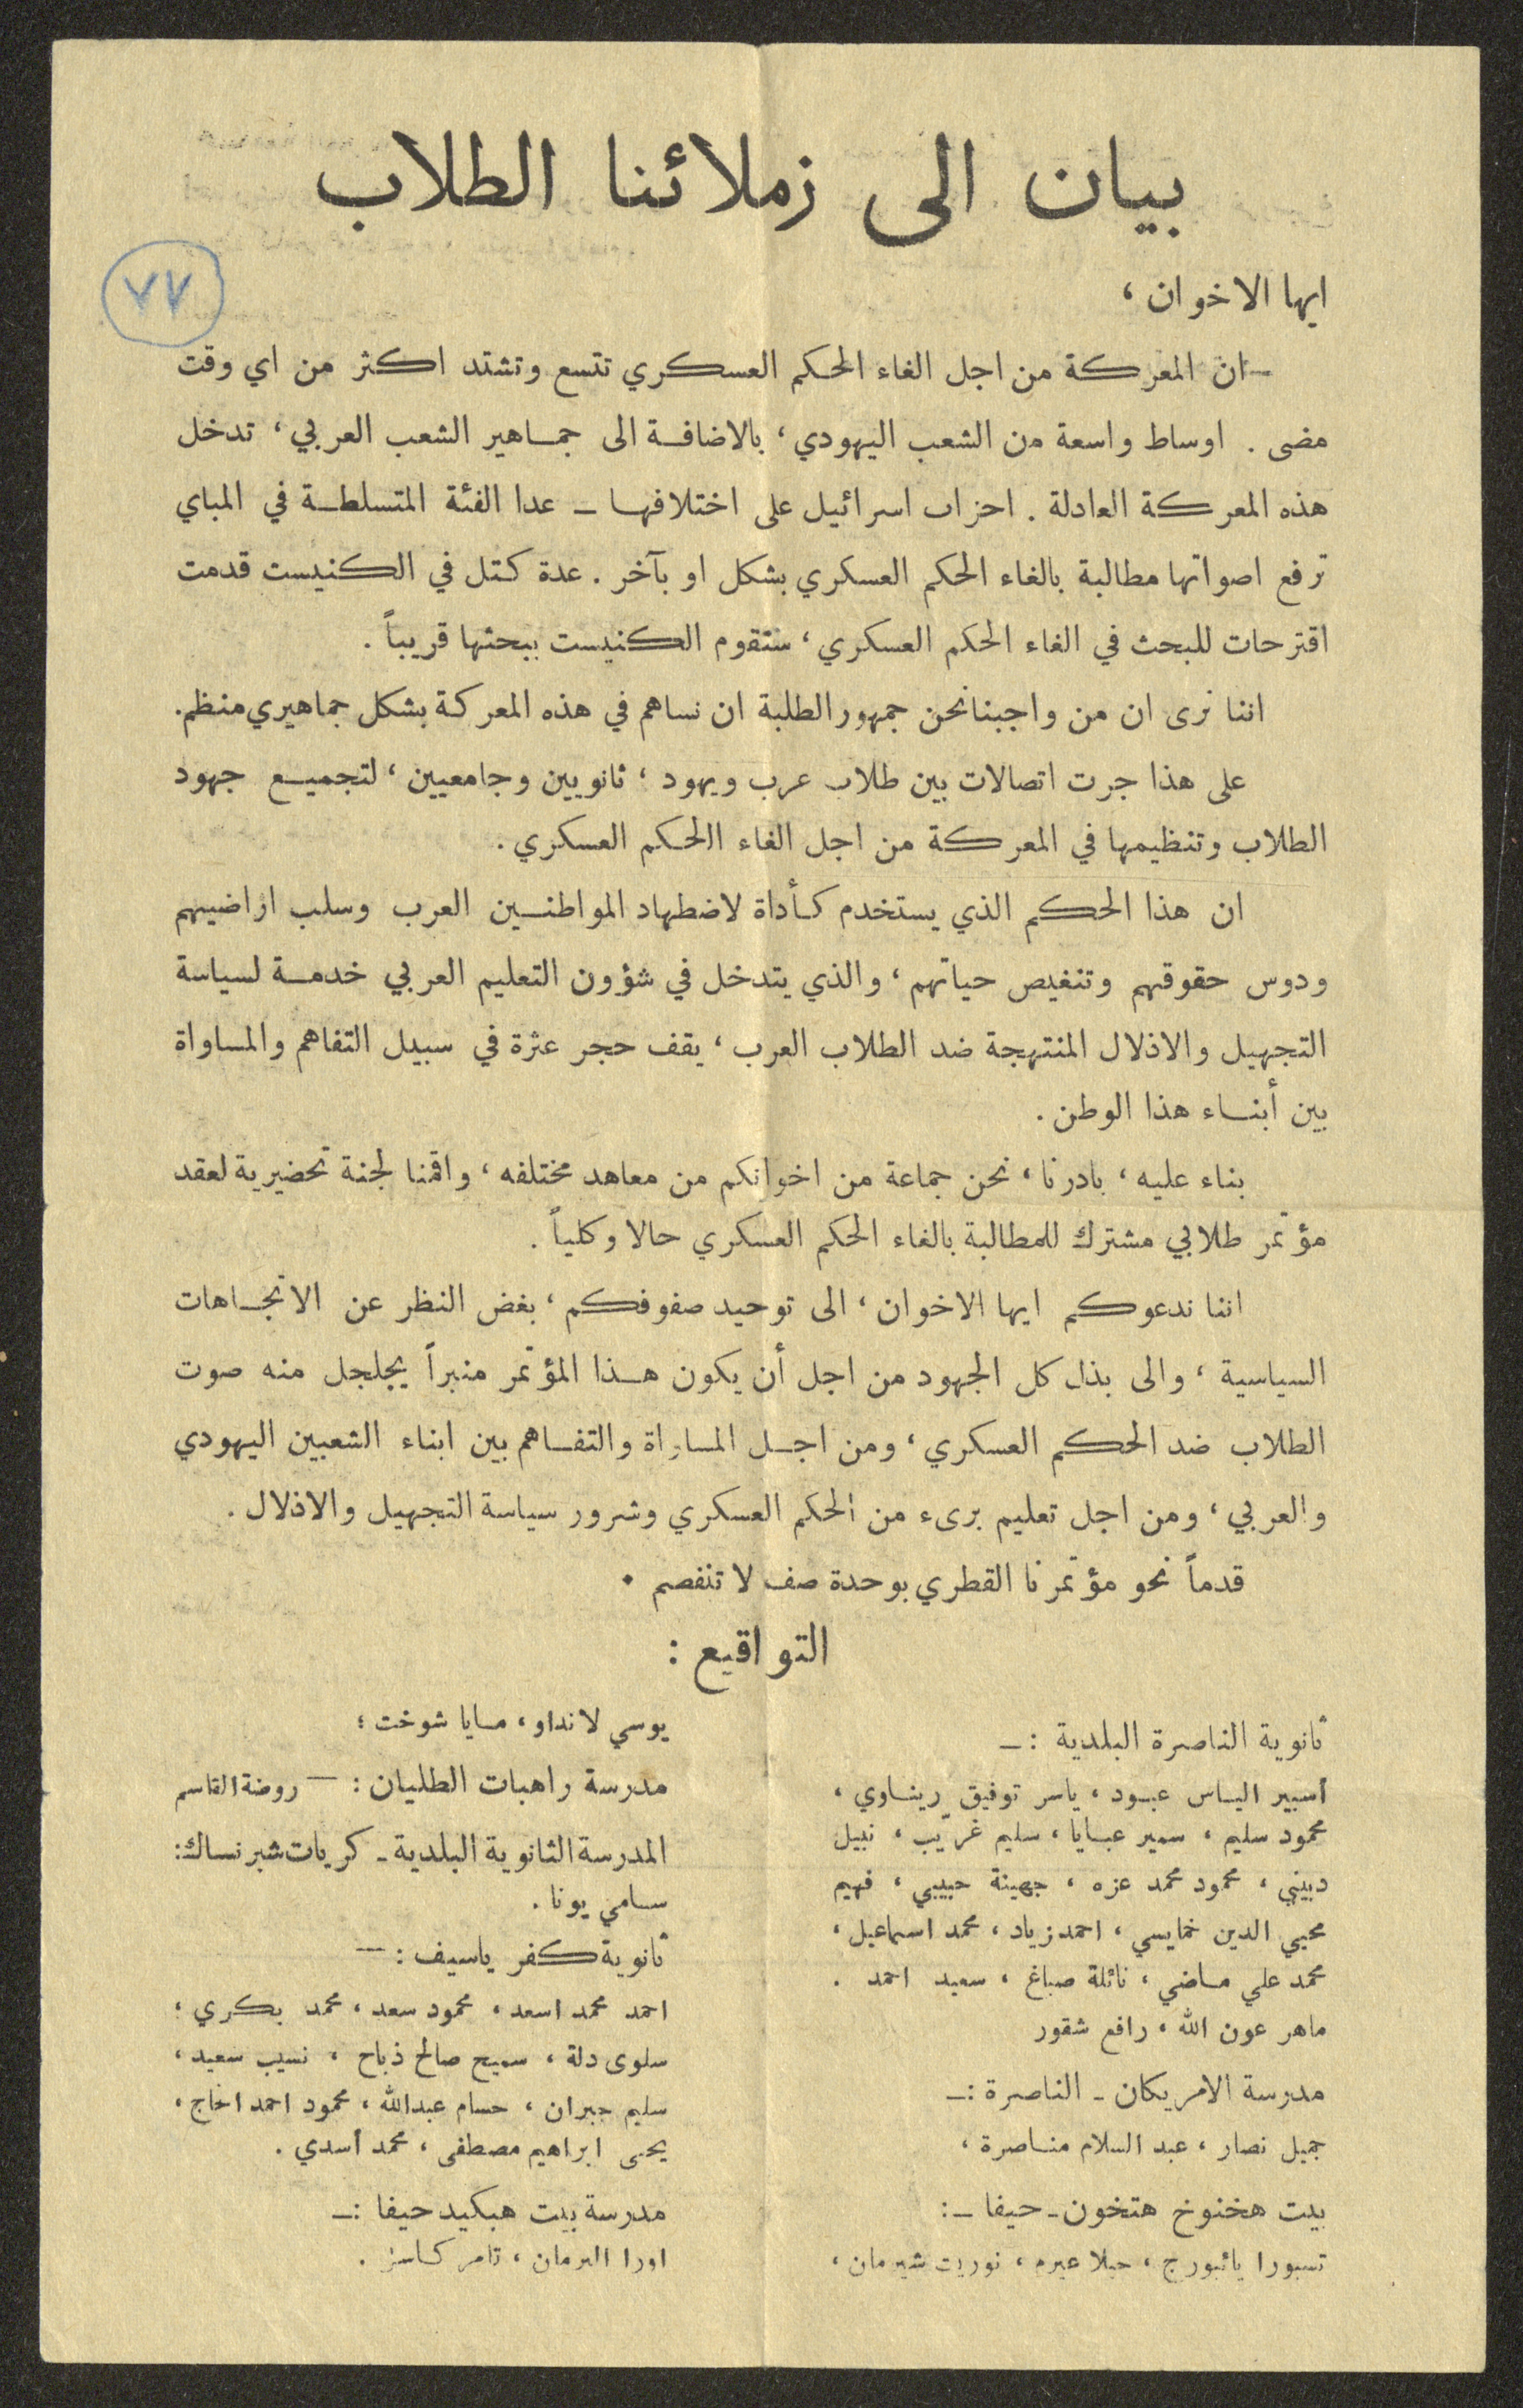 بيان الى زملائنا الطلاب
٧٧
ايها الاخوان ،
ان المعركة من اجل الغاء الحكم العسكري تتسع وتشتد اكثر من اي وقت
مضى . اوساط واسعة من الشعب اليهودي ، بالاضافة الى جماهير الشعب العربي ، تدخل
هذه المعركة العادلة . احزاب اسرائيل على اختلافها ـ عدا الفئة المتسلطة في المباي
ترفع اصواتها مطالبة بالغاء الحكم العسكري بشكل او بآخر . عدة كتل في الكنيست قدمت
اقترحات للبحث في الغاء الحكم العسكري ، ستقوم الكنيست ببحثها قريباً .
اننا نرى ان من واجبنا نحن جمهور الطلبة ان نساهم في هذه المعركة بشكل جماهيري منظم .
على هذا جرت اتصالات بين طلاب عرب ويهود ، ثانويين وجامعيين ، لتجميع جهود
الطلاب وتنظيمها في المعركة من اجل الغاء االحكم العسكري .
ان هذا الحكم الذي يستخدم كأداة لاضطهاد المواطنين العرب وسلب اراضيهم
ودوس حقوقهم وتنغيص حياتهم ، والذي يتدخل في شؤون التعليم العربي خدمة لسياسة
التجهيل والاذلال المنتهجة ضد الطلاب العرب ، يقف حجر عثرة في سبيل التفاهم والمساواة
بين أبناء هذا الوطن .
بناء عليه ، بادرنا ، نحن جماعة من اخوانكم من معاهد مختلفه ، واقمنا لجنة تحضيرية لعقد
مؤتمر طلابي مشترك للمطالبة بالغاء الحكم العسكري حالا وكلياً .
اننا ندعوكم ايها الاخوان ، الى توحيد صفوفكم ، بغض النظر عن الاتجاهات
السياسية ، والى بذل كل الجهود من اجل أن يكون هذا المؤتمر منبراً يجلجل منه صوت
الطلاب ضد الحكم العسكري ، ومن اجل المساواة والتفاهم بين ابناء الشعبين اليهودي
والعربي ، ومن اجل تعليم برىء من الحكم العسكري وشرور سياسة التجهيل والاذلال .
قدماً نحو مؤتمرنا القطري بوحدة صف لا تنفصم .
التواقيع :
ثانوية الناصرة البلدية : ـ
أسبير الياس عبود ، ياسر توفيق ريناوي ،
محمود سليم ، سمير عبايا ، سليم غريّب ، نبيل
دبيني ، محمود محمد عزه ، جهينة حبيبي ، فهيم
محيي الدين خمايسي ، احمد زياد ، محمد اسماعيل ،
محمد علي ماضي ، نائلة صباغ ، سعيد احمد .
ماهر عون الله ، رافع شقور
مدرسة الامريكان ـ الناصرة : ـ
جميل نصار ، عبد السلام مناصرة ،
بيت هخنوخ هتخون ـ حيفا ـ :
تسبورا يائبورج ، حيلا عيرم ، نوريت شيرمان ،
يوسي لانداو ، مايا شوخت ؛
مدرسة راهبات الطليان : ـ روضة القاسم
المدرسة الثانوية البلدية ـ كريات شبرنساك :
سامي يونا .
ثانوية كفر ياسيف : ـ
احمد محمد اسعد ، محمود سعد ، محمد بكري ،
سلوى دلة ، سميح صالح ذباح ، نسيب سعيد ،
سليم جبران ، حسام عبدالله ، محمود احمد الحاج ،
يحيى ابراهيم مصطفى ، محمد أسدي .
مدرسة بيت هبكيد حيفا : ـ
اورا البرمان ، تامر كاسز .